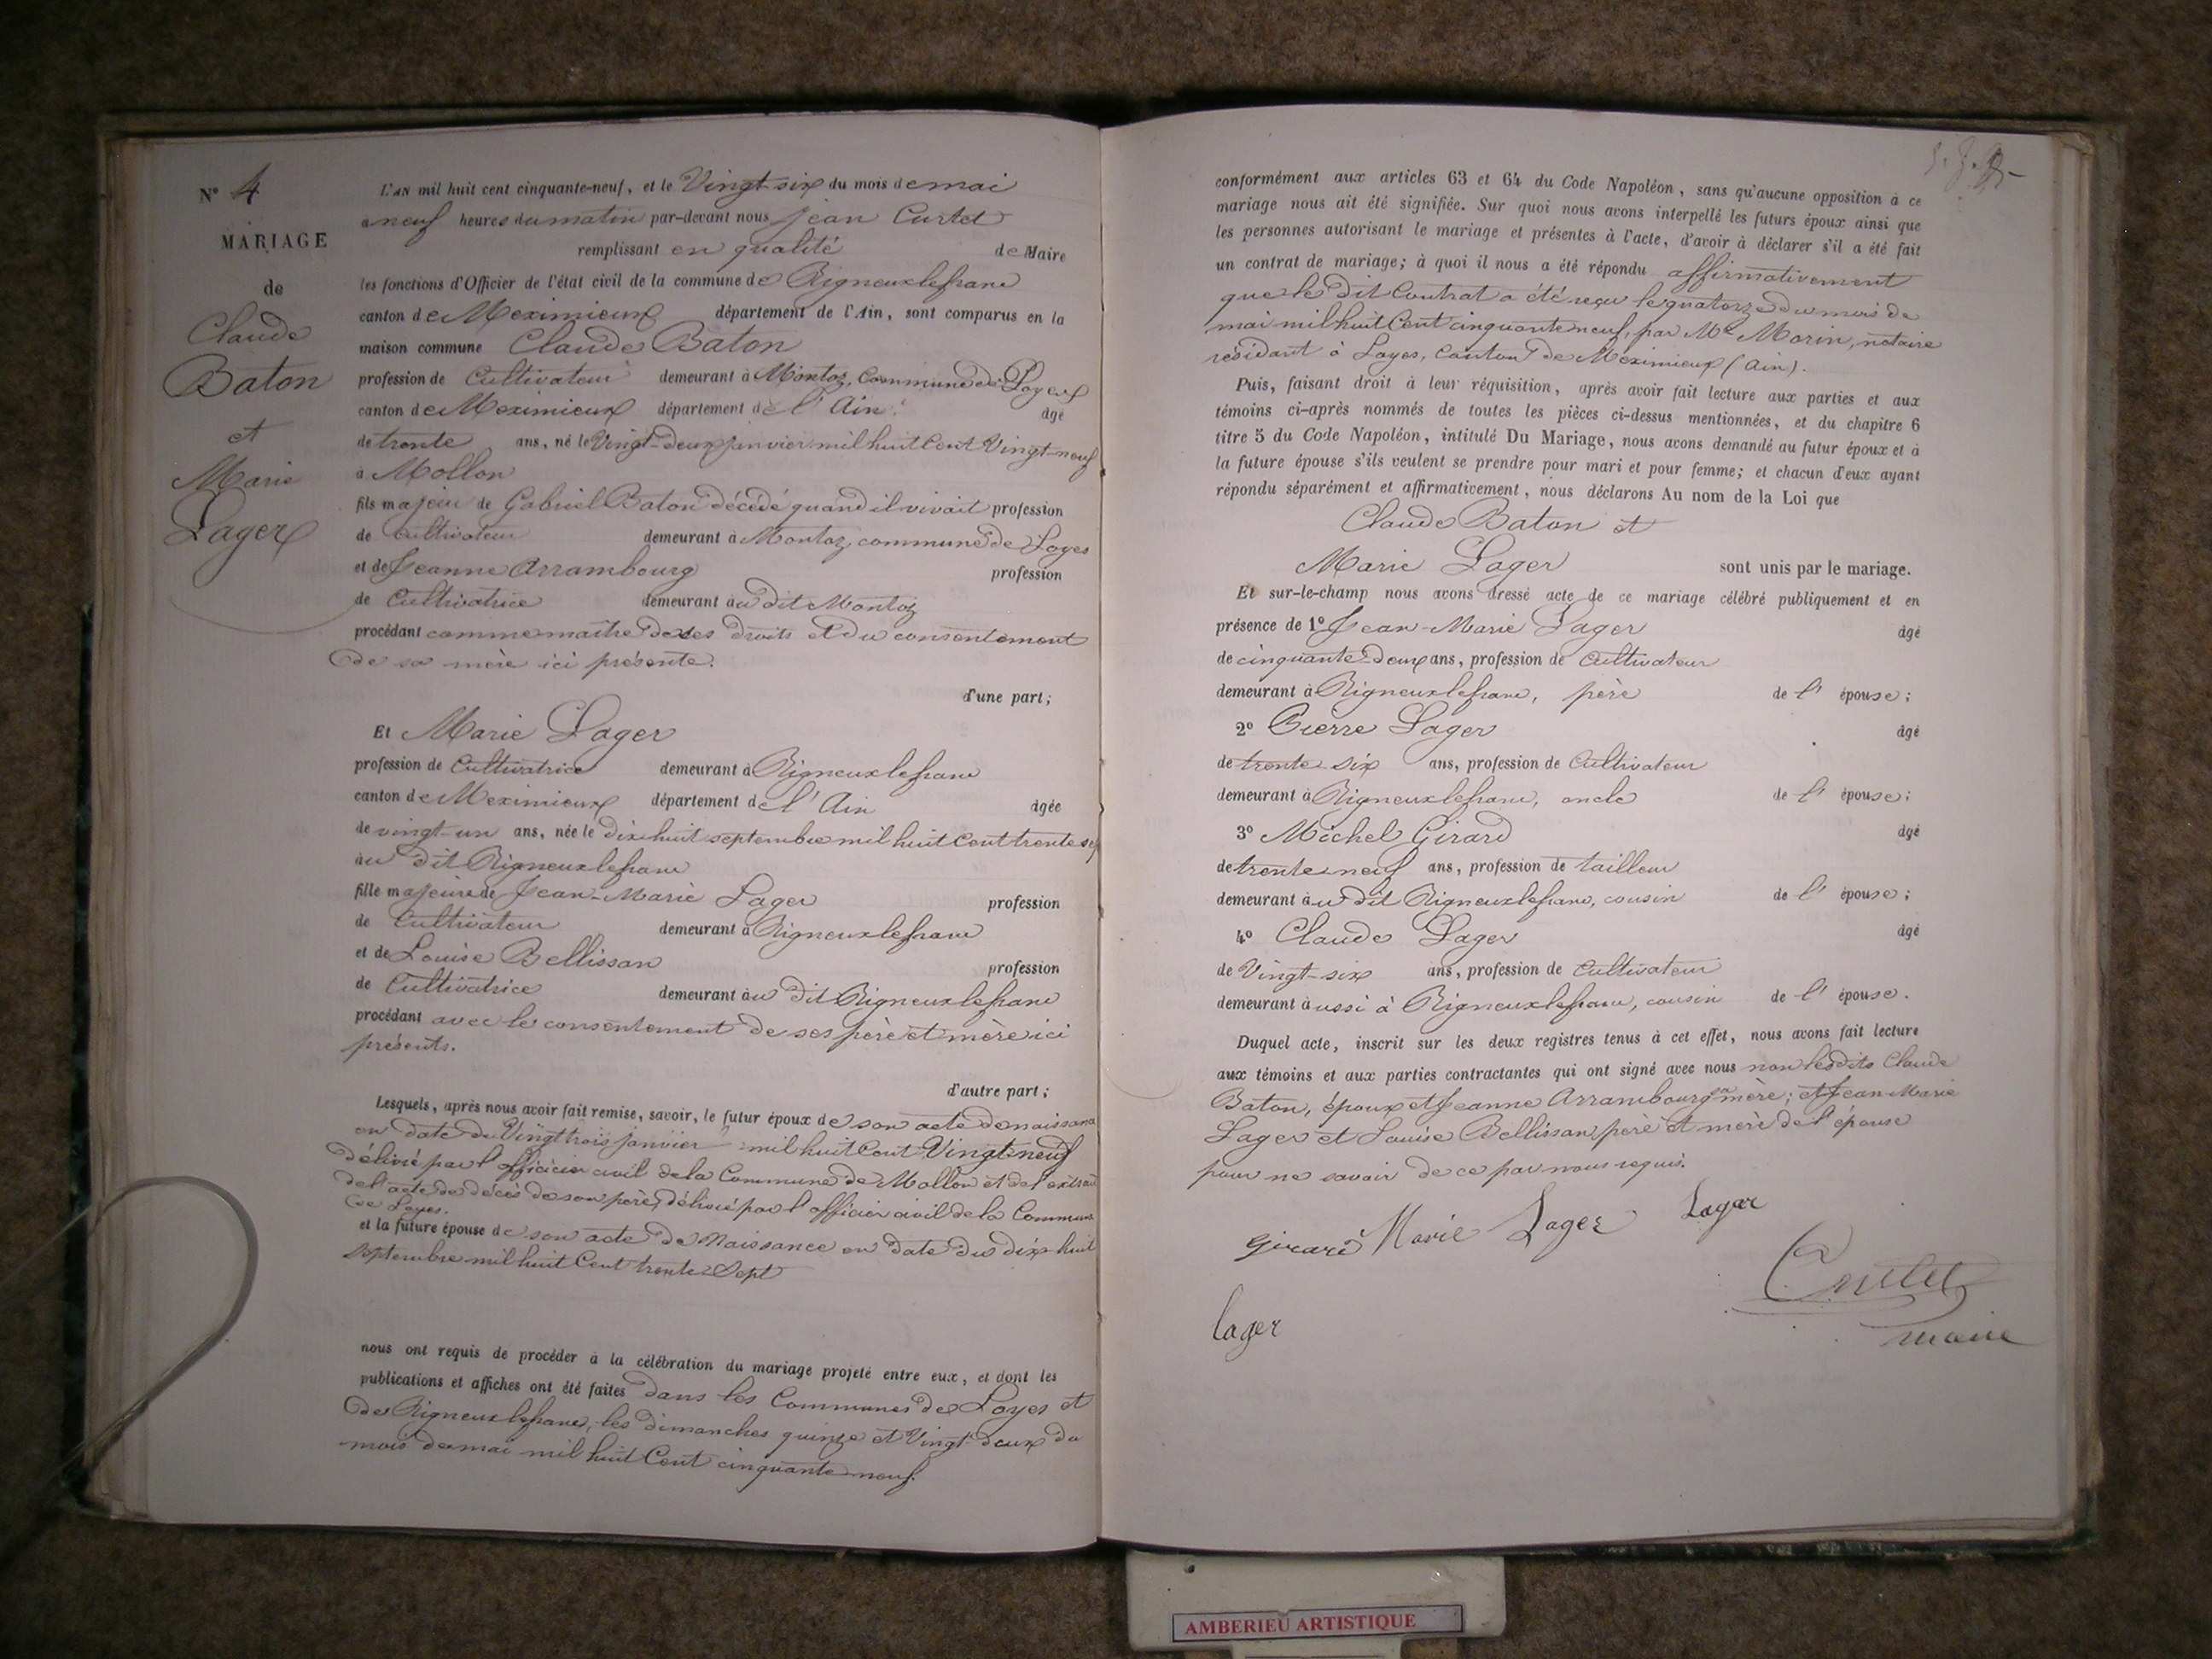 N° 4
MARIAGE
de
Claude
Baton
et
Marie
Lager
L'AN mil huit cent cinquante-neuf, et le Vingt-six du mois de mai
a neuf heures du matin par-devant nous jean Curtet
remplissant en qualité de Maire
les fonctions d'Officier de l'état civil de la commune de Rigneuxlefranc
canton de Meximieux département de l'Ain, sont comparus en la
maison commune Claude Baton
profession de Cultivateur demeurant à Montoz, Commune de Loyes
canton de Meximieux département de l'Ain âgé
de trente ans, né le Vingt-deux janvier mil huit Cent Vingt-neuf
à Mollon
fils majeur de Gabriel Baton décédé quand il vivait profession
de Cultivateur demeurant à Montoz, commune de Loyes
et de Jeanne Arrambourg profession
de Cultivatrice demeurant au dit Montoz
procédant comme maître de ses droits et du consentement
de sa mère ici présente.
d'une part;
Et Marie Lager
profession de Cultivatrice demeurant à Rigneuxlefranc
canton de Meximieux département de l'Ain âgée
de vingt-un ans, née le dix-huit septembre mil huit Cent trente sep
au dit Rigneuxlefranc
fille majeure de Jean-Marie Lager profession
de Cultivateur demeurant à Rigneuxlefranc
et de Louise Bellissan profession
de Cultivatrice demeurant au dit Rigneuxlefranc
procédant avec le consentement de ses père et mère ici
présents.
d'autre part;
Lesquels, après nous avoir fait remise, savoir, le futur époux de son acte de naissance
en date du Vingt trois janvier mil huit Cent Vingt-neuf
délivré par l'officier civil de la Commune de Mollon et de l'extrait
de l'acte de décès de son père, délivré par l'officier civil de la Commune
de Loyes.
et la future épouse de son acte de Naissance en date du dix-huit
septembre mil huit Cent trente Sept
nous ont requis de procéder à la célébration du mariage projeté entre eux, et dont les
publications et affiches ont été faites dans les Communes de Loyes et
de Rigneuxlefranc, les dimanches quinze et Vingt-deux du
mois de mai mil huit Cent cinquante neuf.
conformément aux articles 63 et 64 du Code Napoléon, sans qu'aucune opposition à ce
mariage nous ait été signifiée. Sur quoi nous avons interpellé les futurs époux ainsi que
les personnes autorisant le mariage et présentes à l'acte, d'avoir à déclarer s'il a été fait
un contrat de mariage; à quoi il nous a été répondu affirmativement
que le dit Contrat a été reçu le quatorze du mois de
mai mil huit Cent cinquante neuf, par Me Morin, notaire
résidant à Loyes, canton de Meximieux (Ain).
Puis, faisant droit à leur réquisition, après avoir fait lecture aux parties et aux
témoins ci-après nommés de toutes les pièces ci-dessus mentionnées, et du chapitre 6
titre 5 du Code Napoléon, intitulé Du Mariage, nous avons demandé au futur époux et à
la future épouse s'ils veulent se prendre pour mari et pour femme; et chacun d'eux ayant
répondu séparément et affirmativement, nous déclarons Au nom de la Loi que
Claude Baton et
Marie Lager sont unis par le mariage.
Et sur-le-champ nous avons dressé acte de ce mariage célébré publiquement et en
présence de 1° Jean-Marie Lager âgé
de cinquante-deux ans, profession de Cultivateur
demeurant à Rigneuxlefranc, père de l'épouse;
2° Pierre Lager âgé
de trente-six ans, profession de Cultivateur
demeurant à Rigneuxlefranc, oncle de l'épouse;
3° Michel Girard âgé
de trente neuf ans, profession de tailleur
demeurant au dit Rigneuxlefranc, cousin de l'épouse;
4° Claude Lager âgé
de Vingt-six ans, profession de Cultivateur
demeurant aussi à Rigneuxlefranc, cousin de l'épouse.
Duquel acte, inscrit sur les deux registres tenus à cet effet, nous avons fait lecture
aux témoins et aux parties contractantes qui ont signé avec nous non lesdits Claude
Baton, époux et Jeanne Arrambourg sa mère; et Jean-Marie
Lager et Louise Bellissan, père et mère de l'épouse
pour ne savoir de ce par nous requis.
Girard Marie Lager Lager
Curtet
maire
lager
AMBERIEU ARTISTIQUE